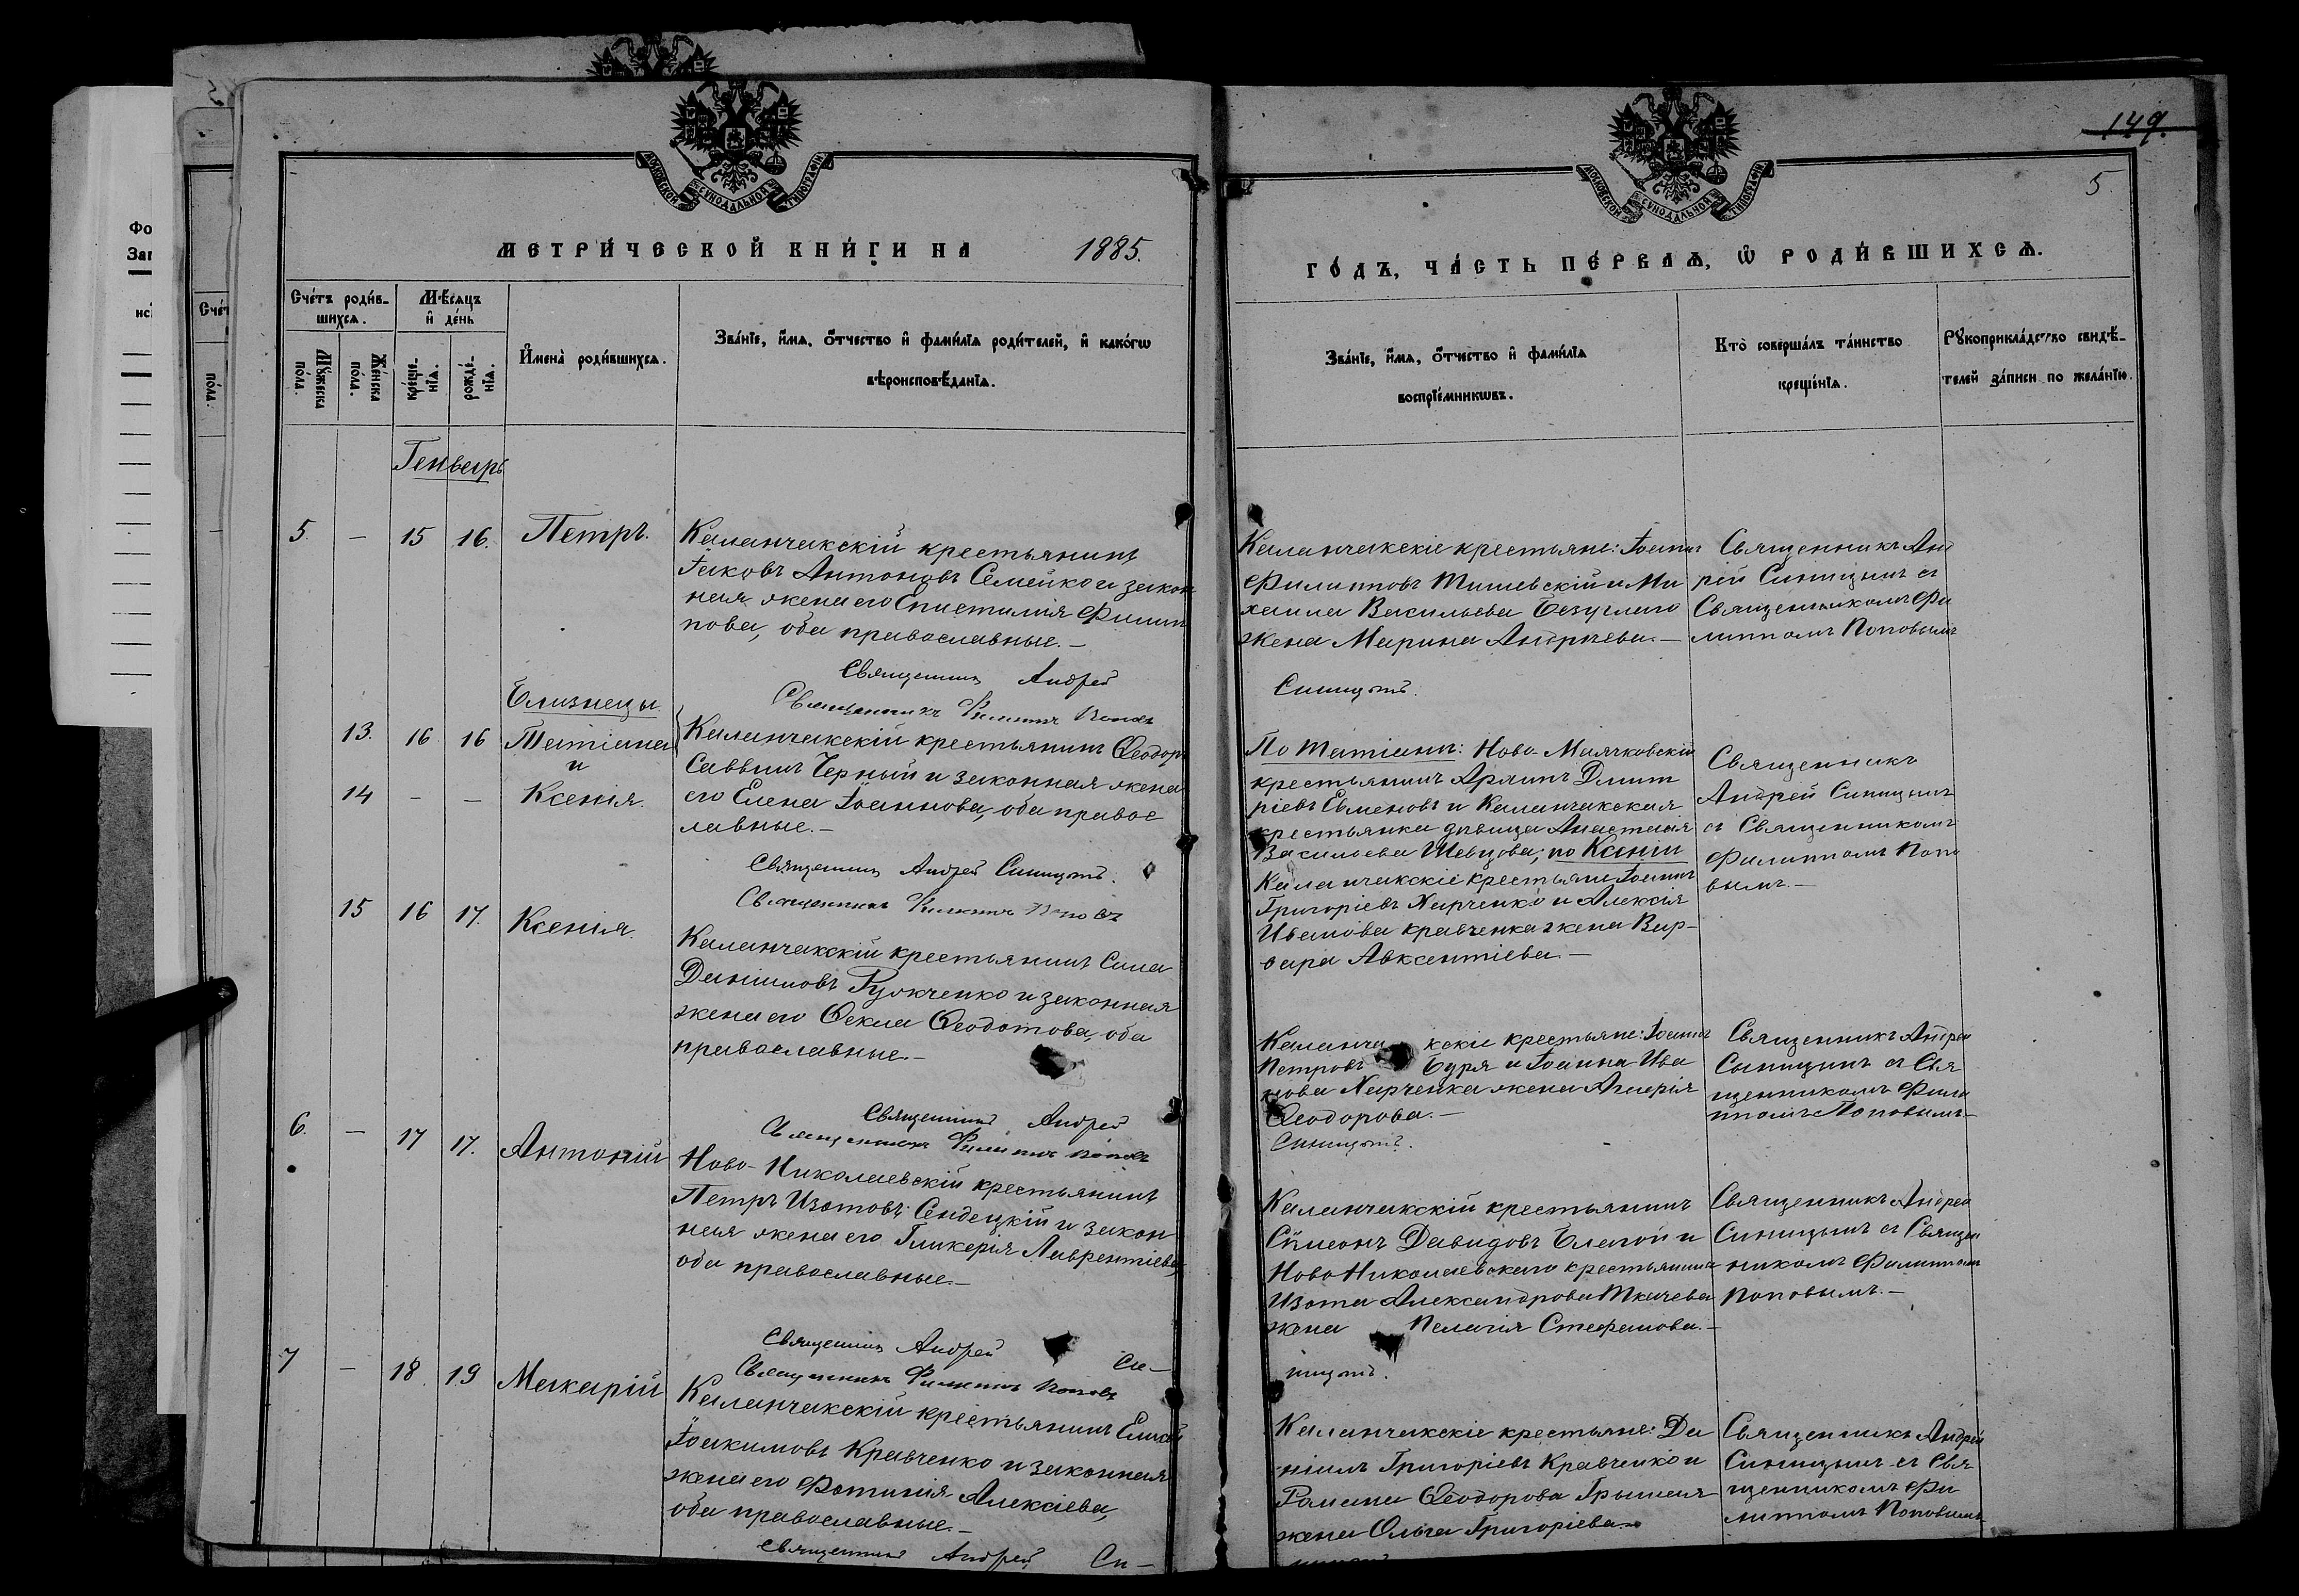 149.
5
МОСКОВСКОЙ СУНОДАЛЬНОЙ ТИПОГРАФІИ
МОСКОВСКОЙ СУНОДАЛЬНОЙ ТИПОГРАФІИ
МЕТРИ́ЧЕСКОЙ КНИ́ГИ НА 1885.
ГО́ДЪ, ЧА́СТЬ ПЕ́РВАѦ, Ѡ РОДИ́ВШИХСѦ.
Фо
Зап
Сче́тъ роди́в-
шихсѧ.
Мꙋ́жеска по́ла.
Же́нска по́ла.
Мѣ́сѧцъ
и҆ де́нь
креще-
нїѧ.
рожде́-
нїѧ.
И҆мена̀ роди́вшихсѧ.
Зва́нїе, и҆́мѧ, ѻ҆́тчество и҆ фами́лїѧ роди́телей, и҆ како́гѡ
вѣроисповѣ́данїѧ.
Зва́нїе, и҆́мѧ, ѻ҆́тчество и҆ фами́лїѧ
воспрїе́мникѡвъ.
Кто̀ соверша́лъ та́инство
креще́нїѧ.
Рꙋкоприкла́дство свидѣ́-
телей за́писи по жела́нїю.
Генварь
5. – 15 16. Петръ.
Каланчакскій крестьянинъ
Іаковъ Антоновъ Семейко и закон
ная жена его Епистимія Филип
пова, оба православные.–
Священникъ Андрей
Священникъ Филиппъ Поповъ
Каланчакскіе крестьяне: Іоаннъ
Филипповъ Тишевскій и Ми
хаила Васильева Безуглаго
жена Марина Андреева.–
Синицынъ.
Священникъ Анд
рей Синицынъ съ
Священникомъ Фи
липпомъ Поповымъ
Близнецы
13. 16 16 Татіана
и
14 – – Ксенія.
Каланчакскій крестьянинъ Ѳеодоръ
Саввинъ Черный и законная жена
его Елена Іоаннова, оба правос
лавные.–
Священникъ Андрей Синицынъ.
Священникъ Филиппъ Поповъ
По Татіанѣ: Ново-Маячковскій
крестьянинъ Дмит
ріевъ Семеновъ и Каланчакская
крестьянка дѣвица Анастасія
Васильева Шевцова; по Ксеніи
Каланчакскіе крестьяне Іоаннъ
Григоріевъ Харченко и Алексія
Иванова Кравченка жена Вар-
вара Авксентіева.–
Священникъ
Андрей Синицынъ
съ Священникомъ
Филиппомъ Попо
вымъ.–
15 16 17. Ксенія.
Каланчакскій крестьянинъ Сила
Даніиловъ и законная
жена его Ѳекла Ѳеодотова, оба
православные.–
Священникъ Андрей
Священникъ Филиппъ Поповъ
Каланчакскіе крестьяне: Іоаннъ
Петровъ Буря и Іоанна Ива
нова Харченка жена
Ѳеодорова.–
Синицынъ.
Священникъ Андрей
Синицынъ съ Свя
щенникомъ Фили
ппомъ Поповымъ–
6. – 17 17. Антоній
Ново-Николаевскій крестьянинъ
Петръ Изотовъ Сендецкій и закон
ная жена его Гликерія Лаврентіева,
оба православные.–
Священникъ Андрей Си–
Священникъ Филиппъ Поповъ
Каланчакскій крестьянинъ
Сѵмеонъ Давидовъ Благой и
Ново Николаевскаго крестьянина
Изота Александрова Ткачева
жена Пелагія Стефанова.–
ницынъ.
Священникъ Андрей
Синицынъ съ Священ
никомъ Филиппомъ
Поповымъ.–
7 – 18. 19 Макарій
Каланчакскій крестьянинъ
Іоакимовъ Кравченко и законная
жена его Фотинія Алексіева,
оба православные.–
Священникъ Андрей Си–
Каланчакскіе крестьяне: Да
ніилъ Григоріевъ Кравченко и
Романа Ѳеодорова
жена Ольга Григоріева.
Священникъ Андрей
Синицынъ съ Свя
щенникомъ Фи
липпомъ Поповымъ